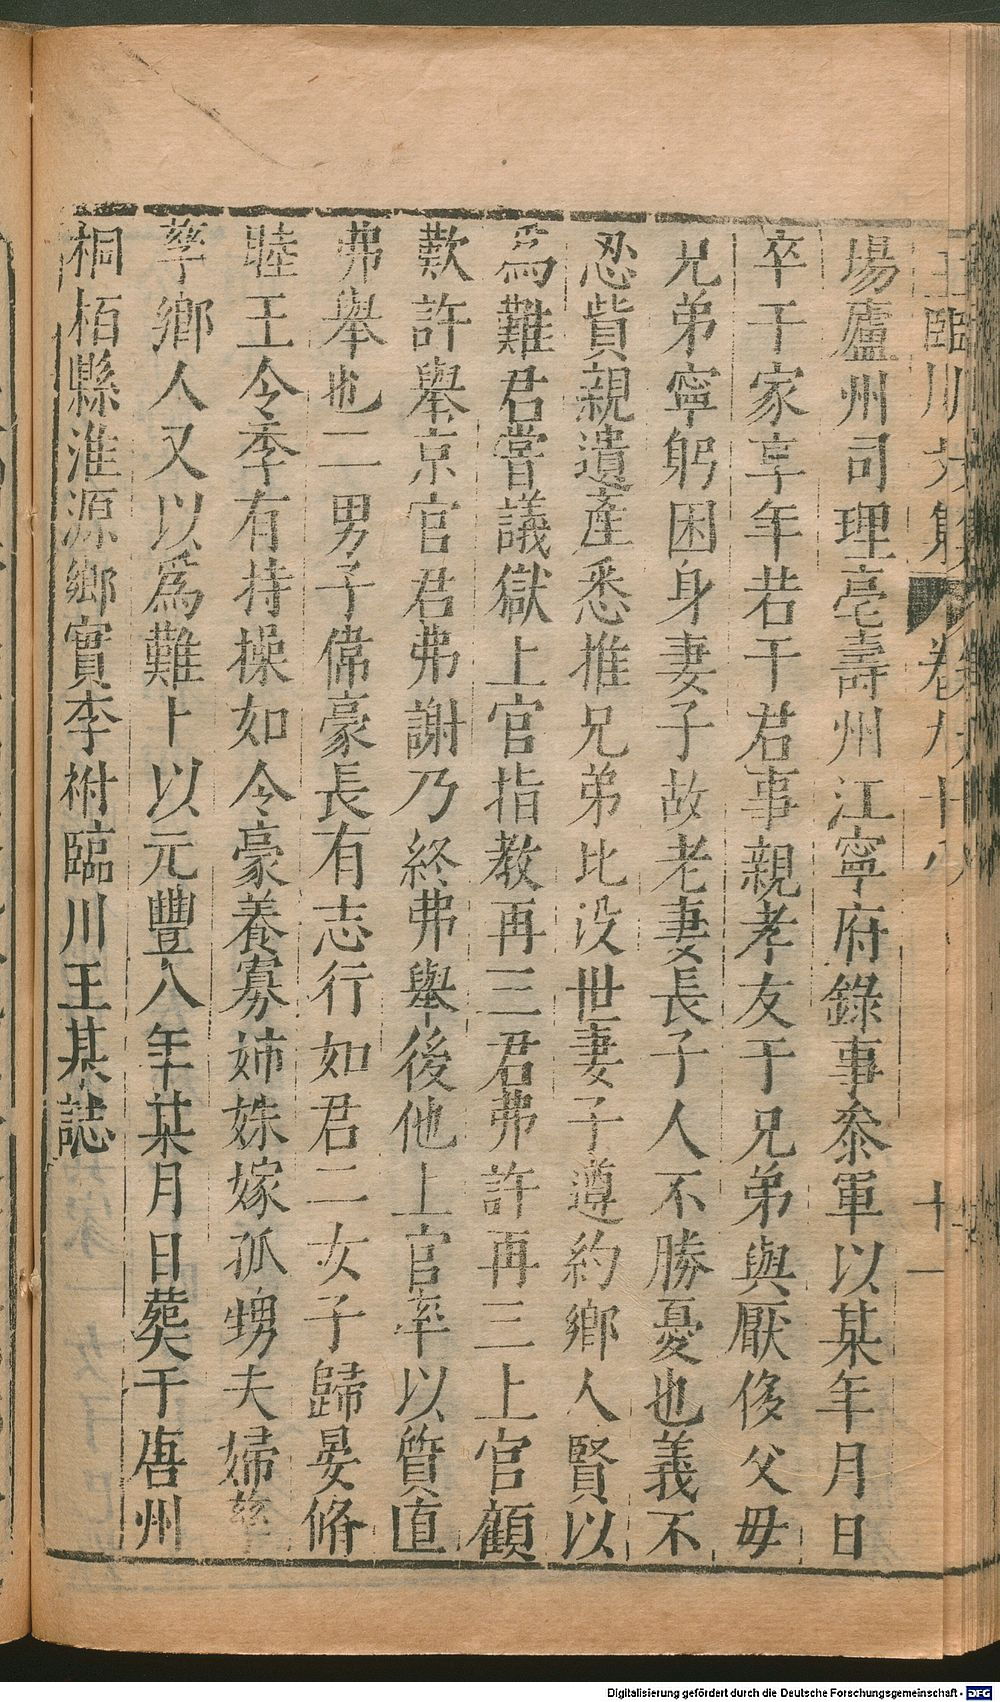 王臨川文集 卷九十八 十一
場廬州司理亳壽州江寧府錄事叅軍以某年月日
卒于家享年若干君事親孝友于兄弟與厭侈父毋
兄弟寧躬困身妻子故老妻長子人不勝憂也義不
忍貲親遺產悉推兄弟比没世妻子遵約鄉人賢以
爲難君嘗議獄上官指教再三君弗許再三上官顧
歎許舉京官君弗謝乃終弗舉後他上官率以質直
弗舉也二男子偉豪長有志行如君二女子歸晏脩
睦王令季有持操如令豪養寡姉姝嫁孤甥夫婦慈
孳鄉人又以爲難卜以元豐八年某月日葬于唐州
桐栢縣淮源鄉實李祔臨川王某誌
Digitalisierung gefördert durch die Deutsche Forschungsgemeinschaft - DFG